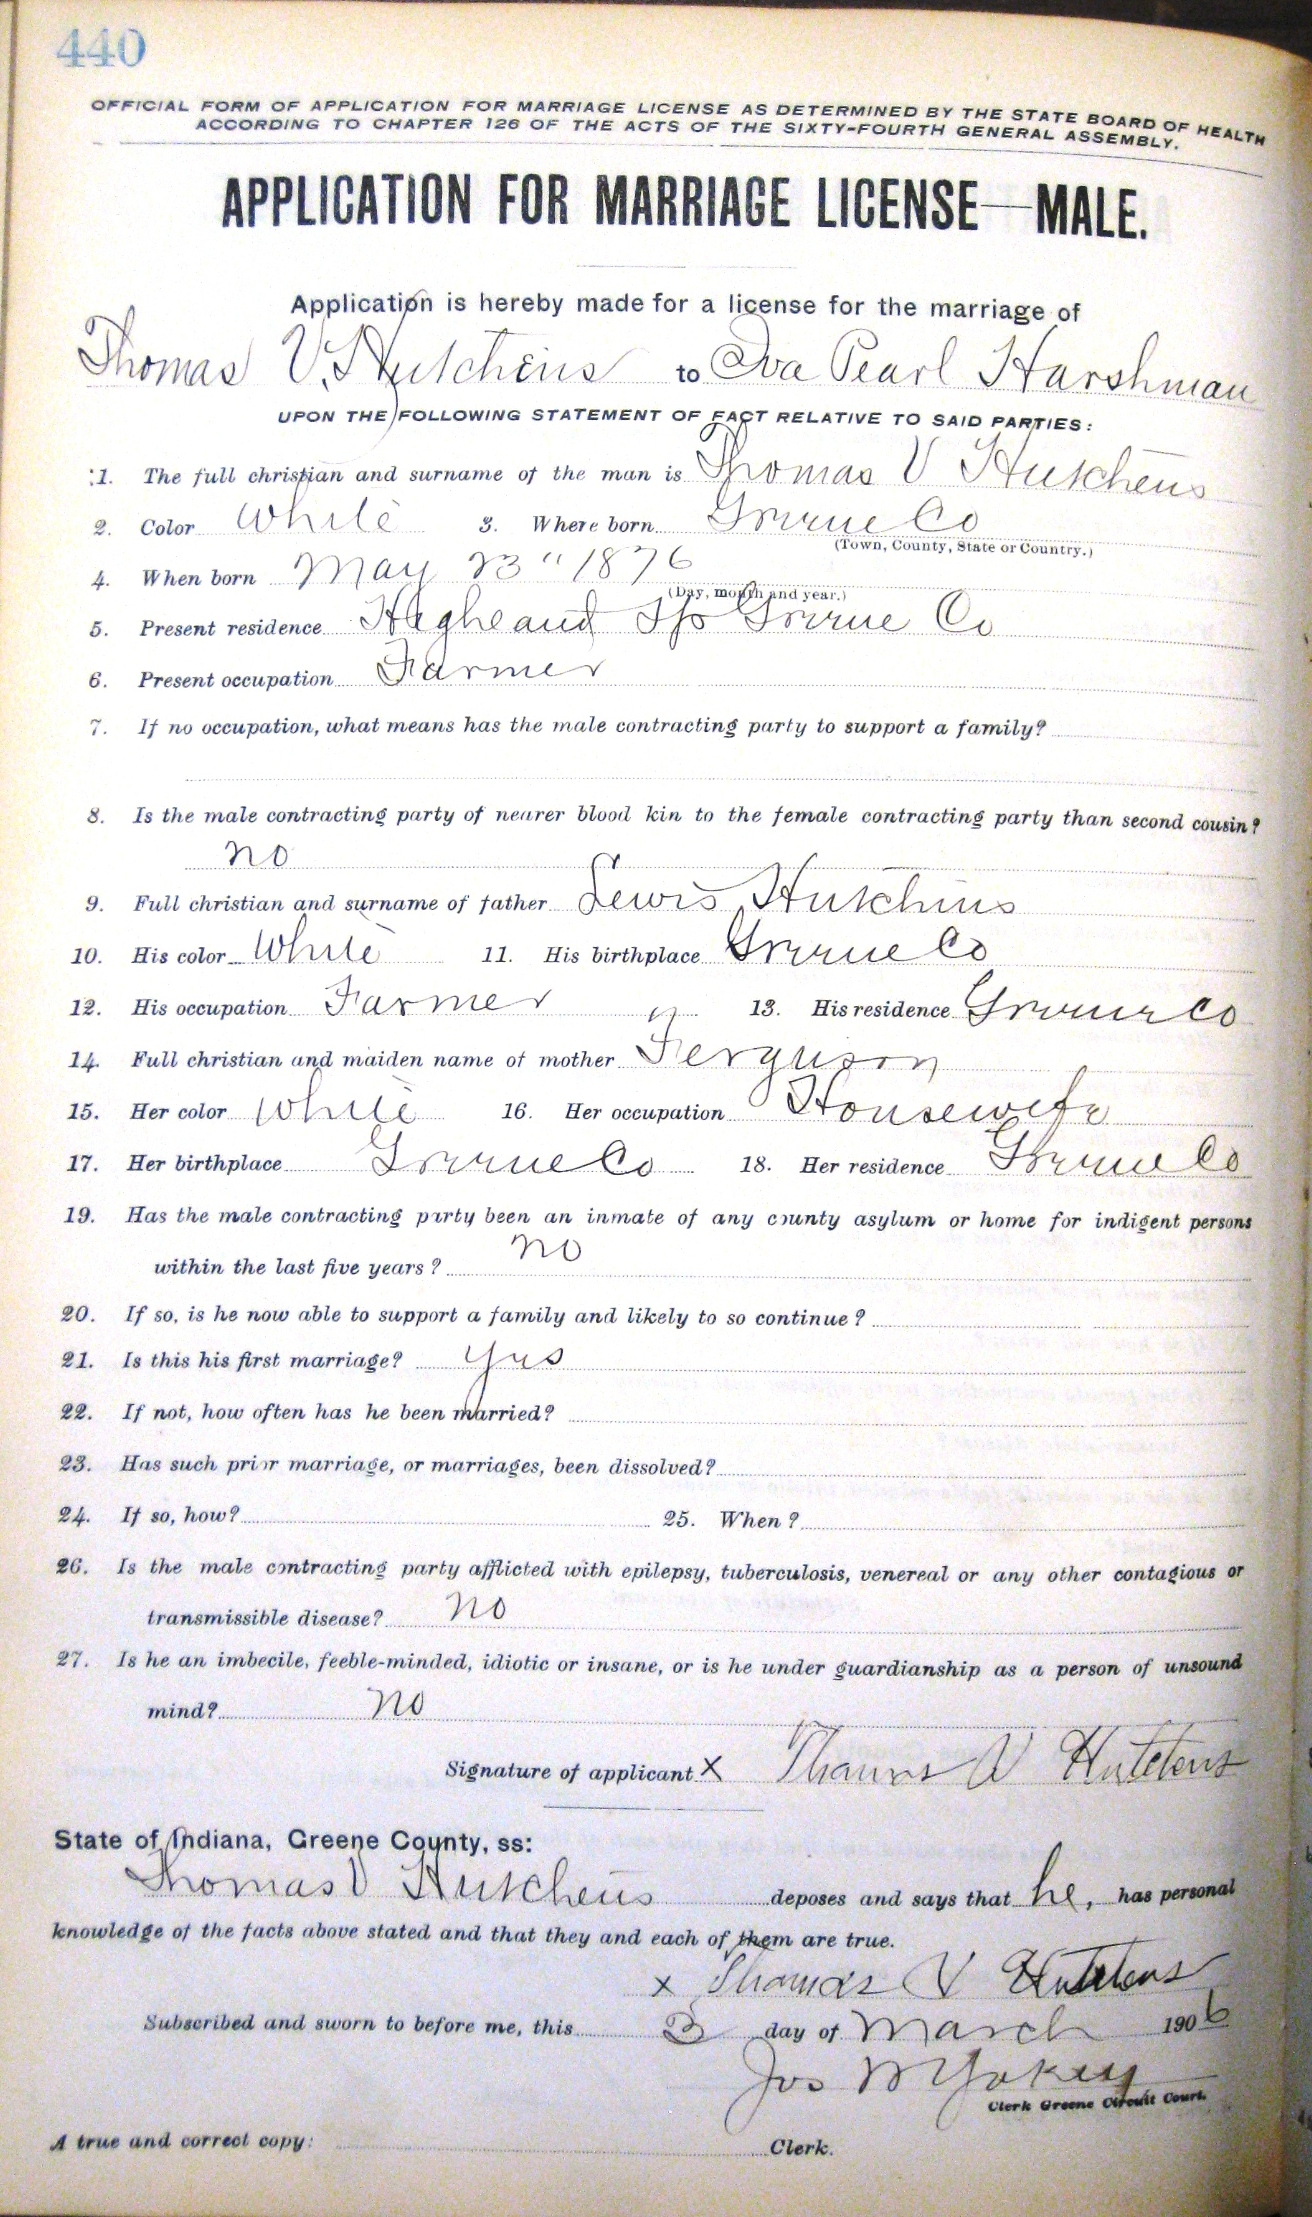 440
OFFICIAL FORM OF APPLICATION FOR MARRIAGE LICENSE AS DETERMINED BY THE STATE BOARD OF HEALTH
ACCORDING TO CHAPTER 126 OF THE ACTS OF THE SIXTY-FOURTH GENERAL ASSEMBLY.
APPLICATION FOR MARRIAGE LICENSE—MALE.
Application is hereby made for a license for the marriage of
Thomas V. Hutchens to Iva Pearl Harshman
UPON THE FOLLOWING STATEMENT OF FACT RELATIVE TO SAID PARTIES:
1. The full christian and surname of the man is Thomas V Hutchens
2. Color White 3. Where born Greene Co
(Town, County, State or Country.)
4. When born May 23" 1876
(Day, month and year.)
5. Present residence Highland Tp Greene Co
6. Present occupation Farmer
7. If no occupation, what means has the male contracting party to support a family?
8. Is the male contracting party of nearer blood kin to the female contracting party than second cousin?
no
9. Full christian and surname of father Lewis Hutchins
10. His color White 11. His birthplace Greene Co
12. His occupation Farmer 13. His residence Greene Co
14. Full christian and maiden name of mother Ferguson
15. Her color White 16. Her occupation Housewife
17. Her birthplace Greene Co 18. Her residence Greene Co
19. Has the male contracting party been an inmate of any county asylum or home for indigent persons
within the last five years? no
20. If so, is he now able to support a family and likely to so continue?
21. Is this his first marriage? yes
22. If not, how often has he been married?
23. Has such prior marriage, or marriages, been dissolved?
24. If so, how? 25. When?
26. Is the male contracting party afflicted with epilepsy, tuberculosis, venereal or any other contagious or
transmissible disease? no
27. Is he an imbecile, feeble-minded, idiotic or insane, or is he under guardianship as a person of unsound
mind? no
Signature of applicant X Thomas V Hutchens
State of Indiana, Greene County, ss:
Thomas V Hutchens deposes and says that he, has personal
knowledge of the facts above stated and that they and each of them are true.
X Thomas V Hutchens
Subscribed and sworn to before me, this 3 day of March 1906
Jos W Yokey
Clerk Greene Circuit Court.
A true and correct copy: Clerk.